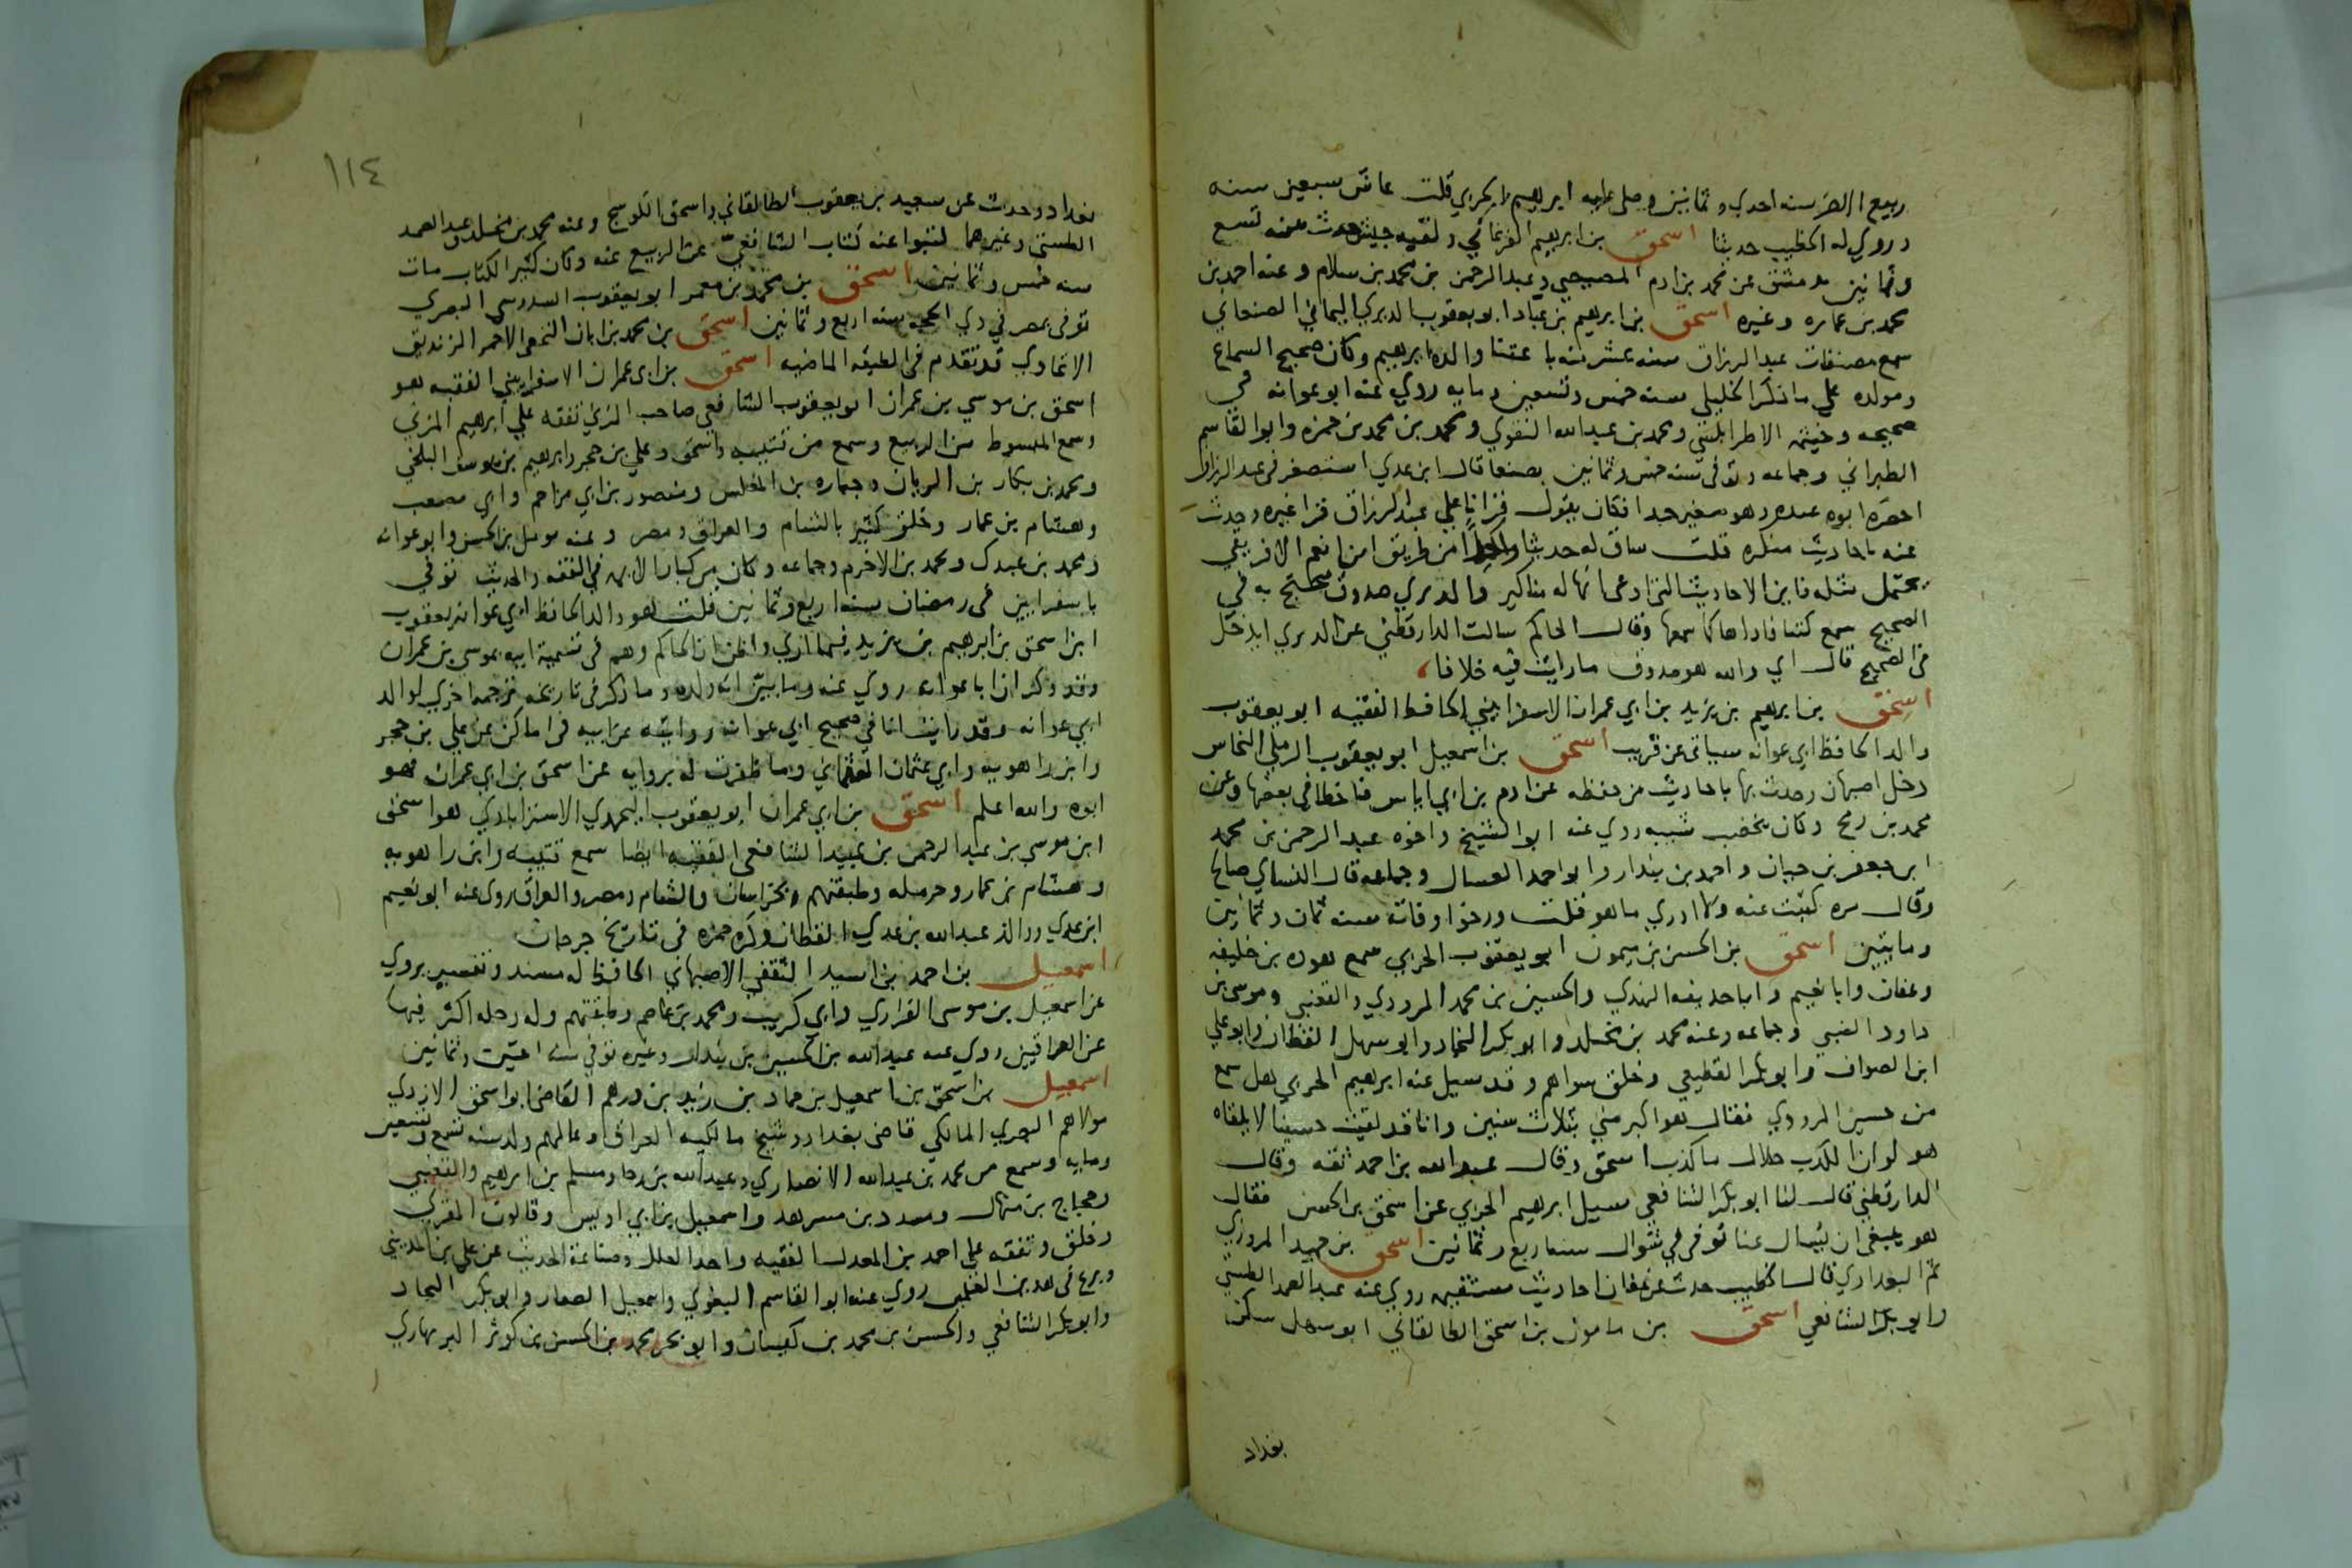 ربيع الاخر سنه احدي وثمانين وصلي عليه ابرهيم الحربي قلت عاش سبعين سنه
وروي له الخطيب حديثا اسحق بن ابرهيم الفرغاني ولقبه جيش حدث سنه تسع
وثمانين بدمشق عن محمد بن ادم المصيصي وعبد الرحمن بن محمد بن سلام وعنه احمد بن
محمد بن عماره وغيره اسحق بن ابرهيم بن عباد ابو يعقوب الدبري اليماني الصنعاني
سمع مصنفات عبد الرزاق سنه عشر منه باعتنا والده ابرهيم وكان صحيح السماع
ومولده علي ما ذكر الخليلي سنه خمس وتسعين ومايه روي عنه ابو عوانه في
صحيحه وخيثمه الاطرابلسي ومحمد بن عبد الله النقوي ومحمد بن محمد بن حمزه وابو القاسم
الطبراني وجماعه وتوفي سنه خمس وثمانين بصنعا قال ابن عدي استصغر في عبد الرزاق
احضره ابوه عنده وهو صغير جدا فكان يقول قرانا علي عبد الرزاق قرا غيره وحدث
عنه باحاديث منكره قلت ساق له حديثا واحدا من طريق ابن انعم الافريقي
يحتمل مثله فاين الاحاديث التي ادعي انها له مناكير والدبري صدوق محتج به في
الصحيح سمع كتبا فاداها كما سمعها وقال الحاكم سالت الدارقطني عن الدبري ايدخل
في الصحيح قال اي والله هو صدوق ما رايت فيه خلافا
اسحق بن ابرهيم بن يزيد بن ابي عمران الاسفرايني الحافظ الفقيه ابو يعقوب
والد الحافظ ابي عوانه سياتي عن قريب اسحق بن اسمعيل ابو يعقوب الرملي النحاس
دخل اصبهان وحدث بها باحاديث من حفظه عن ادم بن ابي اياس فاخطا في بعضها وعن
محمد بن رمح وكان يخضب شيبه روي عنه ابو الشيخ واخوه عبد الرحمن بن محمد
ابن جعفر بن حيان واحمد بن بندار وابو احمد العسال وجماعه قال النساي صالح
وقال مره كتبت عنه ولا ادري ما هو قلت ورخوا وفاته سنه ثمان وثمانين
ومايتين اسحق بن الحسن بن ميمون ابو يعقوب الحربي سمع هوذه بن خليفه
وعفان وابا نعيم وابا حذيفه النهدي والحسين بن محمد المروروذي والقعنبي وموسي بن
داود الضبي وجماعه وعنه محمد بن مخلد وابو بكر النجاد وابو سهل القطان وابو علي
ابن الصواف وابو بكر القطيعي وخلق سواهم وقد سيل عنه ابرهيم الحربي هل سمع
من حسين المروروذي فقال هو اكبر مني بثلاث سنين وانا قد لقيت حسينا لا يلقاه
هو لو ان الكذب حلال ما كذب اسحق وقال عبد الله بن احمد ثقه وقال
الدارقطني قال لنا ابو بكر الشافعي سيل ابرهيم الحربي عن اسحق بن الحسن فقال
هو ينبغي ان يسال عنا توفي في شوال سنه اربع وثمانين اسحق بن حميد المروزي
ثم البغدادي قال الخطيب حدث عن عفان احاديث مستقيمه روي عنه عبد الصمد الطستي
وابو بكر الشافعي اسحق بن مامون بن اسحق الطالقاني ابو سهل سكن
بغداد
١١٤
بغداد وحدث عن سعيد بن يعقوب الطالقاني واسحق الكوسج وعنه محمد بن مخلد وعبد الصمد
الطستي وغيرهما كتبوا عنه كتاب الشافعي عن الربيع عنه وكان كثير الكتاب مات
سنه خمس وثمانين اسحق بن محمد بن معمر ابو يعقوب السدوسي البصري
توفي بمصر في ذي الحجه سنه اربع وثمانين اسحق بن محمد بن ابان النخعي الاحمر الزنديق
الاتحادي قد تقدم في الطبقه الماضيه اسحق بن ابي عمران الاسفرايني الفقيه هو
اسحق بن موسي بن عمران ابو يعقوب الشافعي صاحب المزني تفقه علي ابرهيم المزني
وسمع المبسوط من الربيع وسمع من قتيبه واسحق وعلي بن حجر وابرهيم بن يوسف البلخي
ومحمد بن بكار بن الريان وجباره بن المغلس ومنصور بن ابي مزاحم وابي مصعب
وهشام بن عمار وخلق كثير بالشام والعراق ومصر وعنه مومل بن الحسن وابو عوانه
ومحمد بن عبدك ومحمد بن الاخرم وجماعه وكان من كبار الايمه في الفقه والحديث توفي
باسفراين في رمضان سنه اربع وثمانين قلت هو والد الحافظ ابي عوانه يعقوب
ابن اسحق بن ابرهيم بن يزيد فيما اري واظن ان الحاكم وهم في تسمية ابيه بموسي بن عمران
وقد ذكر ان ابا عوانه روي عنه وما بين انه ولده وما ذكر في تاريخه ترجمه اخري لوالد
ابي عوانه وقد راينا انا في صحيح ابي عوانه روايته عن ابيه في اماكن عن علي بن حجر
وابن راهويه وابي عثمان العثماني وما ظفرت له بروايه عن اسحق بن ابي عمران فهو
ابوه والله اعلم اسحق بن ابي عمران ابو يعقوب اليحمدي الاستراباذي هو اسحق
ابن موسي بن عبد الرحمن بن عبيد الشافعي الفقيه ايضا سمع قتيبه وابن راهويه
وهشام بن عمار وحرمله وطبقتهم بخراسان والشام ومصر والعراق روي عنه ابو نعيم
ابن عدي ووالد عبد الله بن عدي القطان ذكره حمزه في تاريخ جرجان
اسمعيل بن احمد بن اسيد الثقفي الاصبهاني الحافظ له مسند وتفسير يروي
عن اسمعيل بن موسي الفزاري وابي كريب ومحمد بن عاصم وطبقتهم وله رحله اكثر فيها
عن العراقيين روي عنه عبد الله بن الحسين بن بندار وغيره توفي سنه اثنتين وثمانين
اسمعيل بن اسحق بن اسمعيل بن حماد بن زيد بن درهم القاضي ابو اسحق الازدي
مولاهم البصري المالكي قاضي بغداد وشيخ مالكيه العراق وعالمهم ولد سنه تسع وتسعين
ومايه وسمع من محمد بن عبد الله الانصاري وعبد الله بن رجا ومسلم بن ابرهيم والقعنبي
وحجاج بن منهال ومسدد بن مسرهد واسمعيل بن ابي اويس وقالون المقري
وخلق وتفقه علي احمد بن المعذل الفقيه واخذ العلل وصناعة الحديث عن علي بن المديني
وبرع في هذين العلمين روي عنه ابو القاسم البغوي واسمعيل الصفار وابو بكر النجاد
وابو بكر الشافعي والحسن بن محمد بن كيسان وابو بحر محمد بن الحسن بن كوثر البربهاري